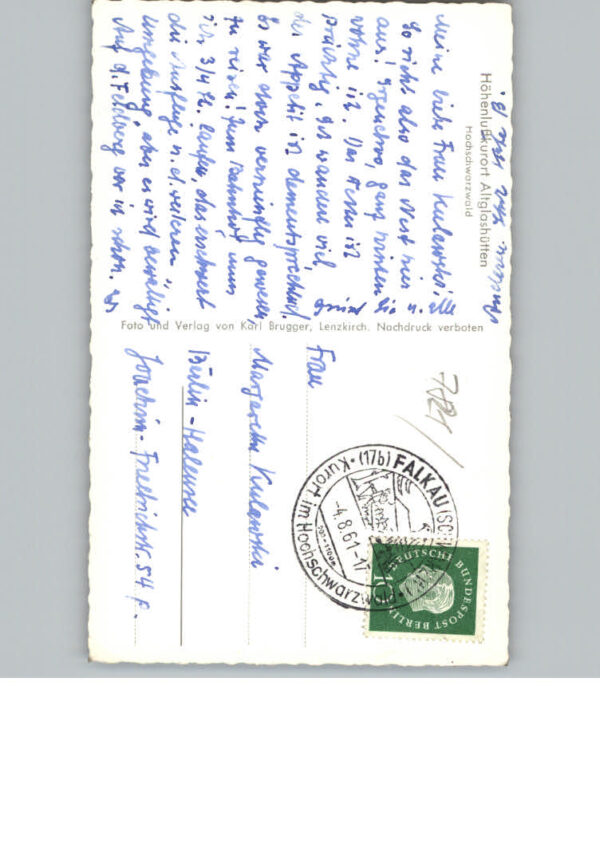 Höhenluftkurort Altglashütten
Hochschwarzwald
Meine liebe Frau Kulawski.
So sieht also das Nest hier
aus! Irgendwo, ganz hinten
wohne ich. Das Essen ist
prächtig, ich wandere viel,
der Appetit ist dementsprechend.
Es war etwas vernünftig gewesen,
zu reisen! Zum Bahnhof muss
ich 3/4 St. laufen, das erschwert
die Ausflüge n. d. weiteren
Umgebung, aber es wird bewältigt
Auf d. Feldberg war ich schon. Es
grüsst Sie u. alle
Foto und Verlag von Karl Brugger, Lenzkirch. Nachdruck verboten
Frau
Margarethe Kulawski
Berlin-Halensee
Joachim-Friedrichstr. 54 p.
(17b) FALKAU (SCHW
Kurort im Hochschwarzwald
-4.8.61-1
DEUTSCHE BUNDESPOST BERLIN
10